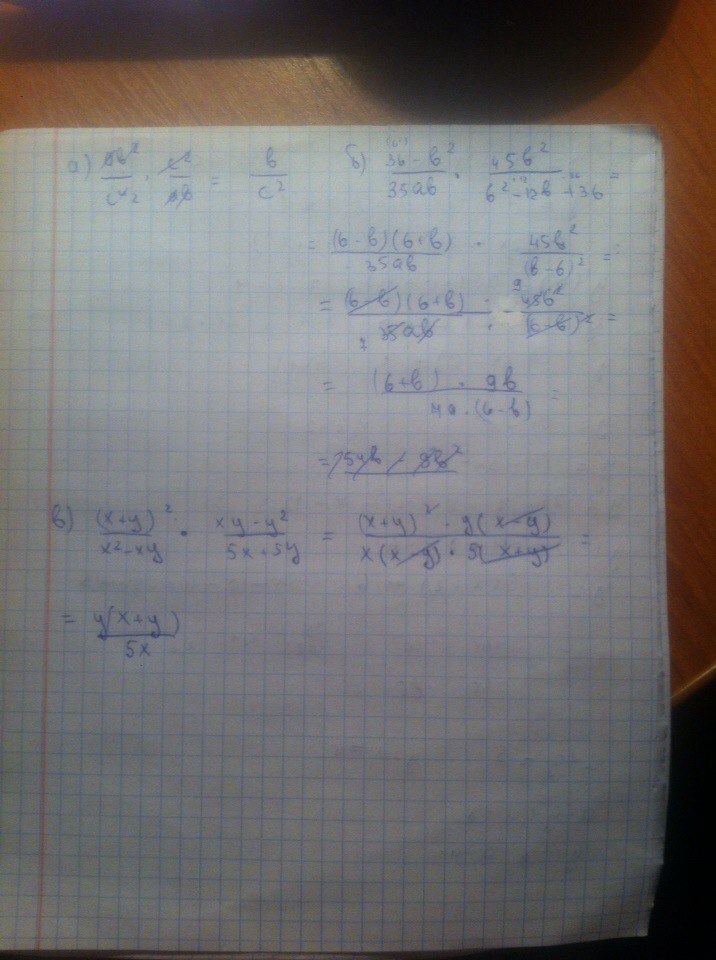 а) ab²/c⁴ · c²/ab = b/c²
б) 36-b²/35ab · 45b²/b²-12b+36 =
= (6-b)(6+b)/35ab · 45b²/(b-6)² =
= (6-b)(6+b)/35ab · 45b²/(6-b)² =
= (6+b) · 9b/7a·(6-b) =
в) (x+y)²/x²-xy · xy-y²/5x+5y = (x+y)²·y(x-y)/x(x-y)·5(x+y) =
= y(x+y)/5x